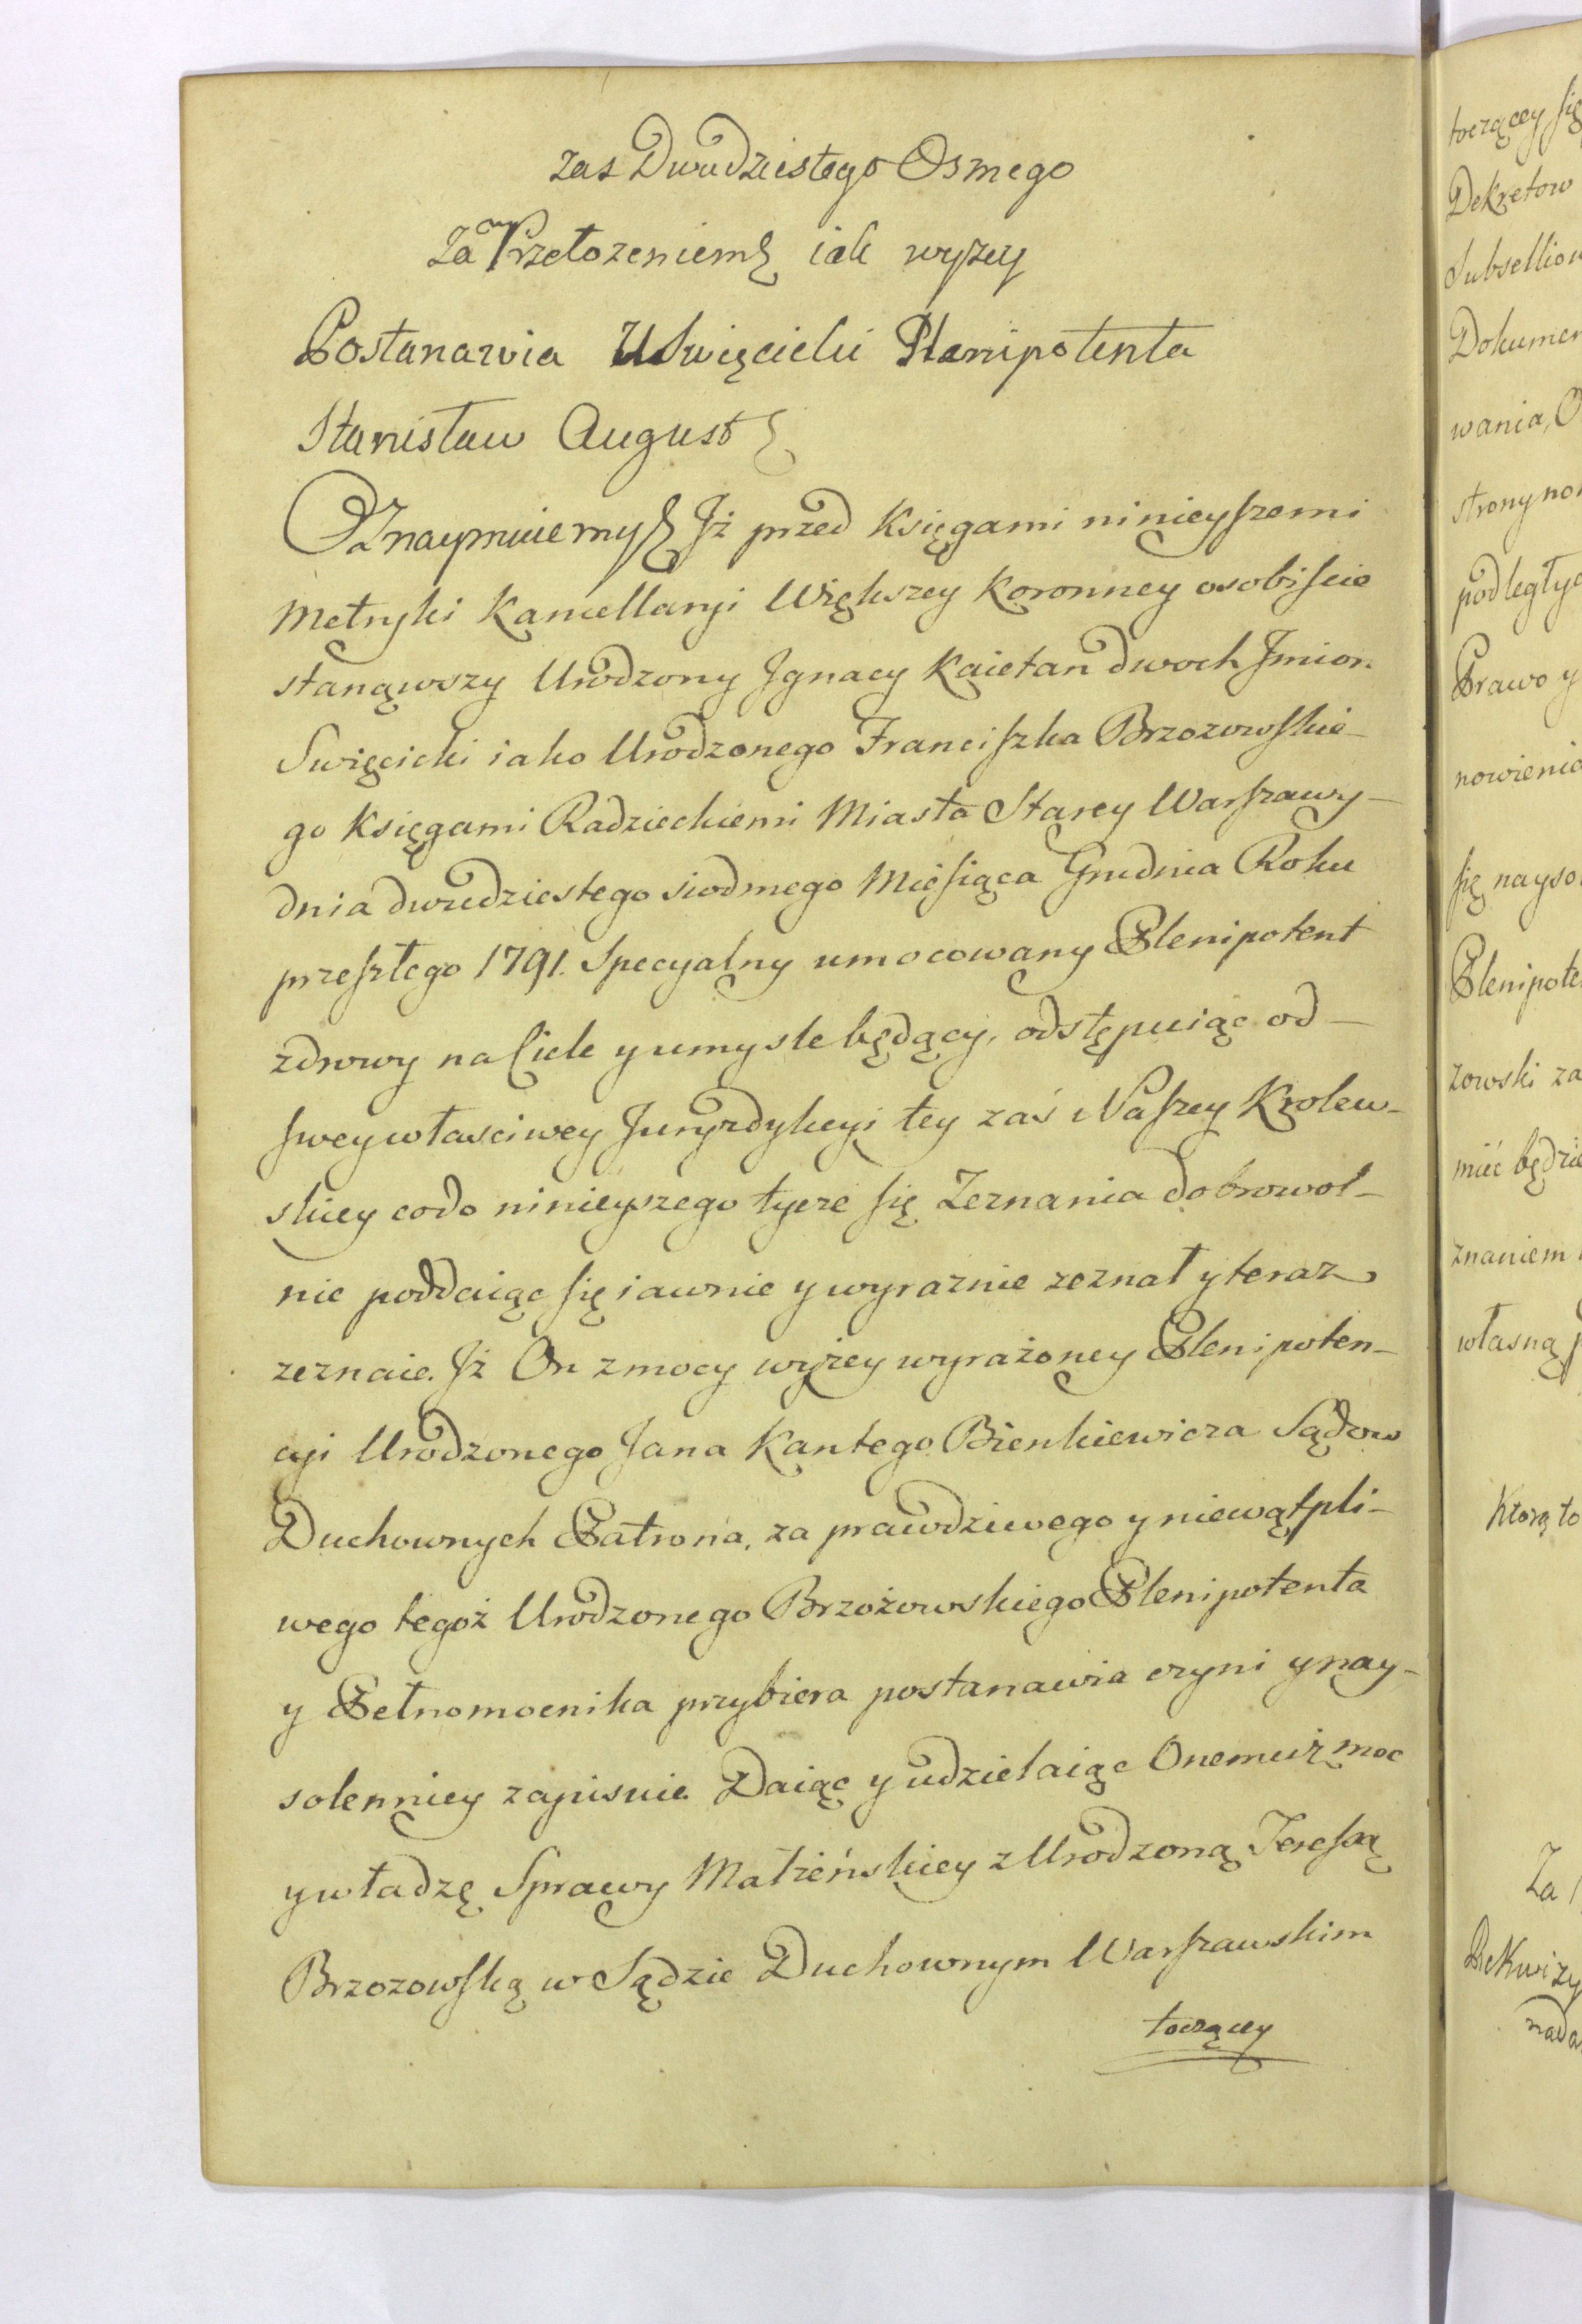 zas Dwudziestego Osmego
Za Przełozeniem iak wyzey
Postanawia U Swięcicki Plenipotenta
Stanisław August
Oznaymuiemy Jż przed Księgami ninieyszemi
Metryki Kancellaryi Większey Koronney osobiscie
stanąwszy Urodzony Jgnacy Kaietan dwoch Jmion
Swięcicki iako Urodzonego Franciszka Brzozowskie-
go Księgami Radzieckiemi Miasta Starey Warszawy-
dnia dwudziestego siodmego Miesiąca Grudnia Roku
przeszłego 1791. Specyalny umocowany Plenipotent
zdrowy na Ciele y umysle będący, odstępuiąc od-
swey własciwey Juryzdykcyi tey zaś Naszey Krolew-
skiey co do ninieyszego tycze się Zeznania dobrowol-
nie poddaiąc się iawnie y wyraznie zeznał y teraz
zeznaie. Jż On z mocy wyżey wyrażoney Plenipoten-
cyi Urodzonego Jana Kantego Bienkiewicza Sądow
Duchownych Patrona, za prawdziwego y niewątpli-
wego tegoż Urodzonego Brzożowskiego Plenipotenta
y Pełnomocnika przybiera postanawia czyni y nay-
solenniey zapisuie. Daiąc y udzielaiąc Onemuż moc
y władzę Sprawy Małżeńskiey z Urodzoną Teressą
Brzozowską w Sądzie Duchownym Warszawskim
toczącey
toczącey się
Dekretow
Subsellio
Dokumen
wania, O
strony
podległyc
Prawo y
nowienia
się nayso
Plenipote
zowski za
mieć będzie
znaniem
własną
Ktorą to
Za
Rekwizy
nada